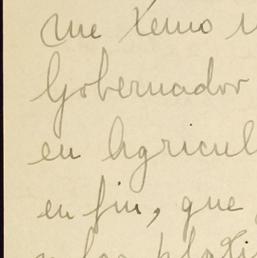 me temo
Gobernador
en Agricul
en fin, que